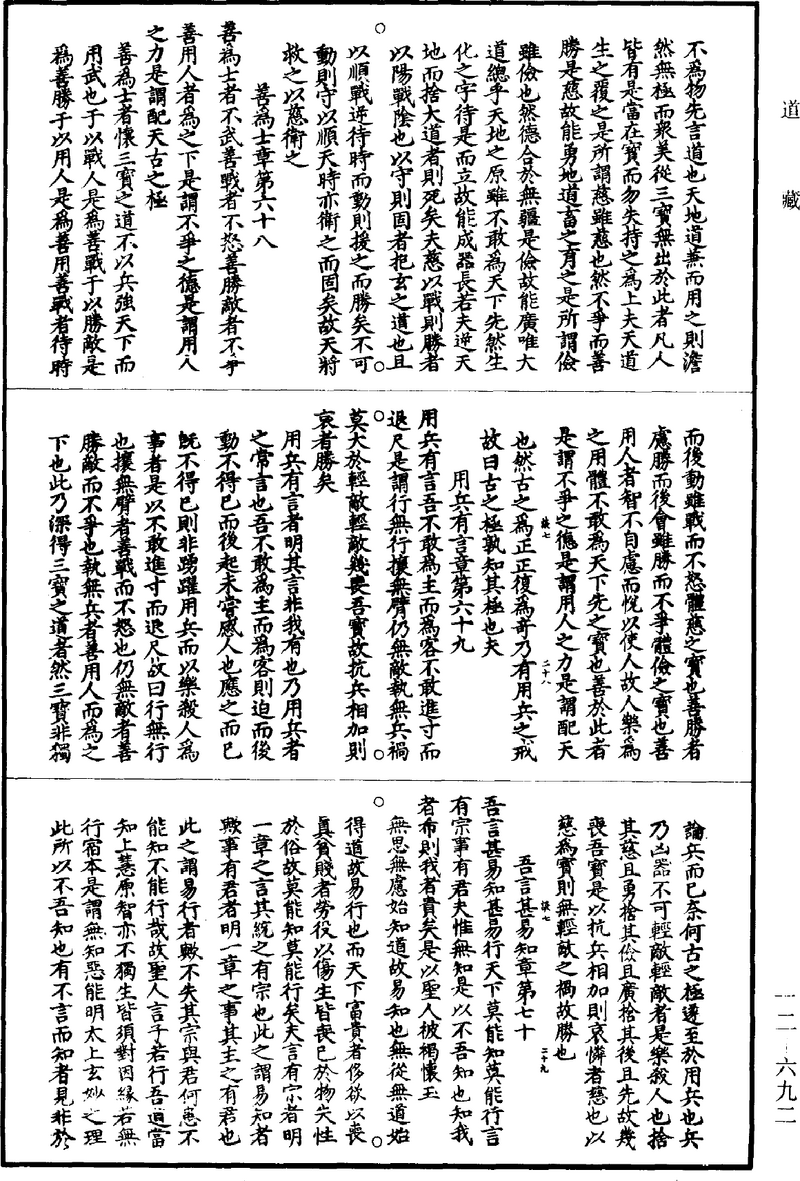 道藏
不為物先言道也天地道蕪而用之則澹
然無極而衆美從三寶無出於此者凡人
皆有是當在寶而勿失持之為上夫天道
生之覆之是所謂慈雖慈也然不爭而善
勝是慈故能勇地道畜之育之是所謂儉
雖儉也然德合於無疆是儉故能廣唯大
道總乎天地之原雖不敢為天下先然生
化之字待是而立故能成器長若夫逆天
地而捨大道者則死矣夫慈以戰則勝者
以陽戰陰也以守則固者抱玄之道也且
以順戰逆待時而動則援之而勝矣不可
動則守以順天時亦衛之而固矣故天將
救之以慈衛之
善為士章第六十八
善為士者不武善戰者不怒善勝敵者不爭
善用人者為之下是謂不爭之德是謂用人
之力是謂配天古之極
善為士者懷三寶之道不以兵強天下而
用武也于以戰人是為善戰于以勝敵是
為善勝于以用人是為善用善戰者待時
而後動雖戰而不怒體慈之寶也善勝者
慮勝而後會雖勝而不爭體儉之寶也善
用人者智不自慮而悅以使人故人樂為
之用體不敢為天下先之寶也善於此者
是謂不爭之德是謂用人之力是謂配天
也然古之為正正復為奇乃有用兵之戒
談七
二十八
故曰古之極孰知其極也夫
用兵有言章第六十九
用兵有言吾不敢為主而為客不敢進寸而
退尺是謂行無行攘無臂仍無敵執無兵禍
莫大於輕敵輕敵幾喪吾寶故抗兵相加則
哀者勝矣
用兵有言者明其言非我有也乃用兵者
之常言也吾不敢為主而為客則迫而後
動不得已而後起未嘗感人也應之而已
既不得已則非踴躍用兵而以樂殺人為
事者是以不敢進寸而退尺故曰行無行
也攘無臂者善戰而不怒也仍無敵者善
勝敵而不爭也執無兵者善用人而為之
下也此乃深得三寶之道者然三寶非獨
論兵而已奈何古之極遽至於用兵也兵
乃凶器不可輕敵輕敵者是樂殺人也捨
其慈且勇捨其儉且廣捨其後且先故幾
喪吾寶是以抗兵相加則哀憐者慈也以
慈為寶則無輕敵之禍故勝也
談七
二十九
吾言甚易知章第七十
吾言甚易知甚易行天下莫能知莫能行言
有宗事有君夫惟無知是以不吾知也知我
者希則我者貴矣是以聖人被褐懷玉
無思無慮始知道故易知也無從無道始
得道故易行也而天下富貴者侈欲以喪
真貧賤者勞役以傷生皆喪已於物失性
於俗故莫能知莫能行矣夫言有宗者明
一章之言其統之有宗也此之謂易知者
歟事有君者明一章之事其主之有君也
此之謂易行者歟不失其宗與君何患不
能知不能行哉故聖人言于若行吾道當
知上慧原智亦不獨生皆須對因緣若無
行宿本是謂無知惡能明太上玄妙之理
此所以不吾知也有不言而知者見非於
一二-六九二